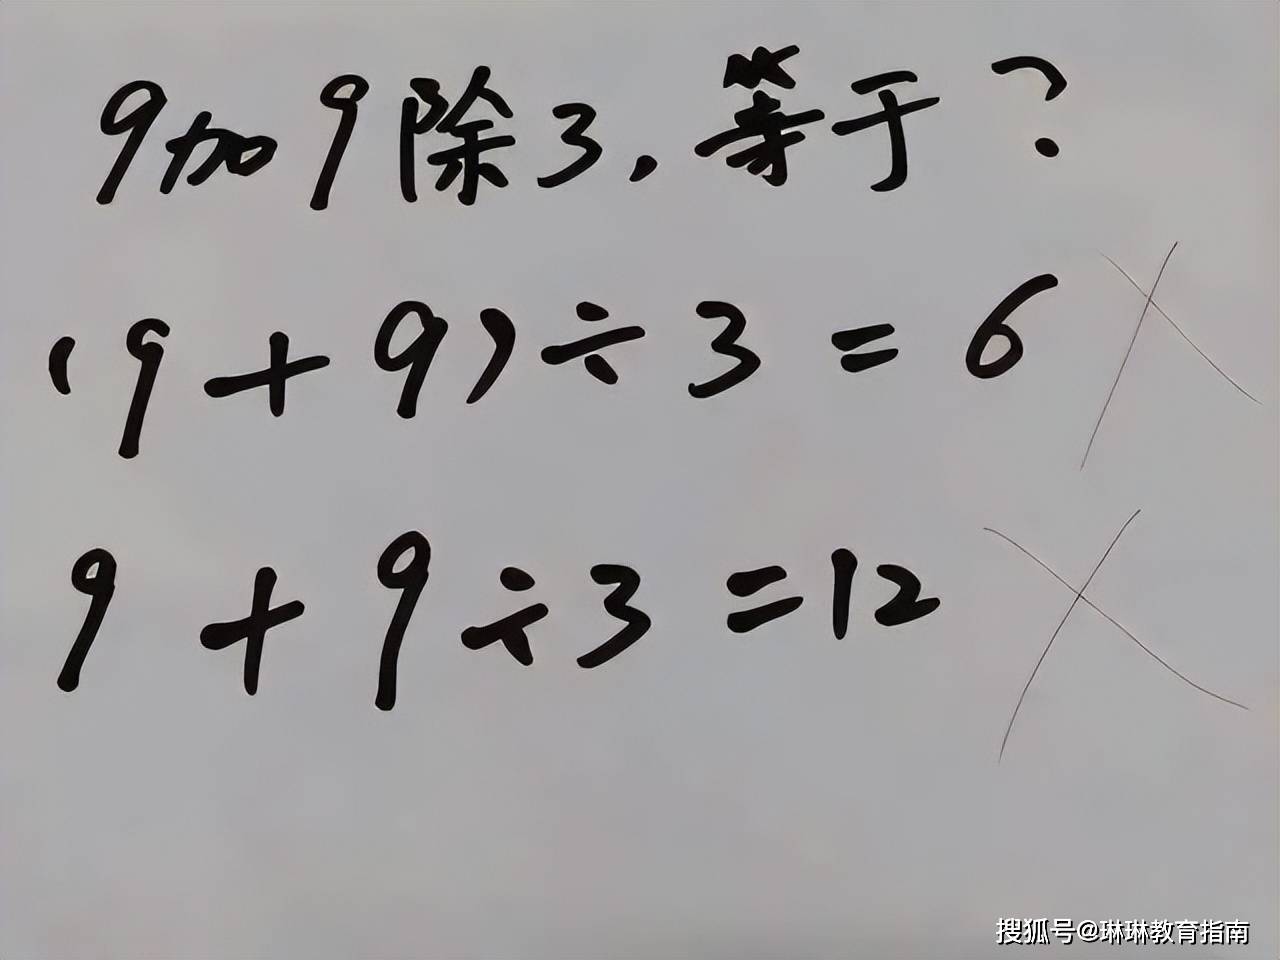 9加9除3，等于？
(9+9)÷3=6
9+9÷3=12
搜狐号@琳琳教育指南